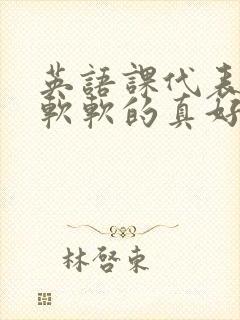 英語課代表
軟軟的真好
林啓東